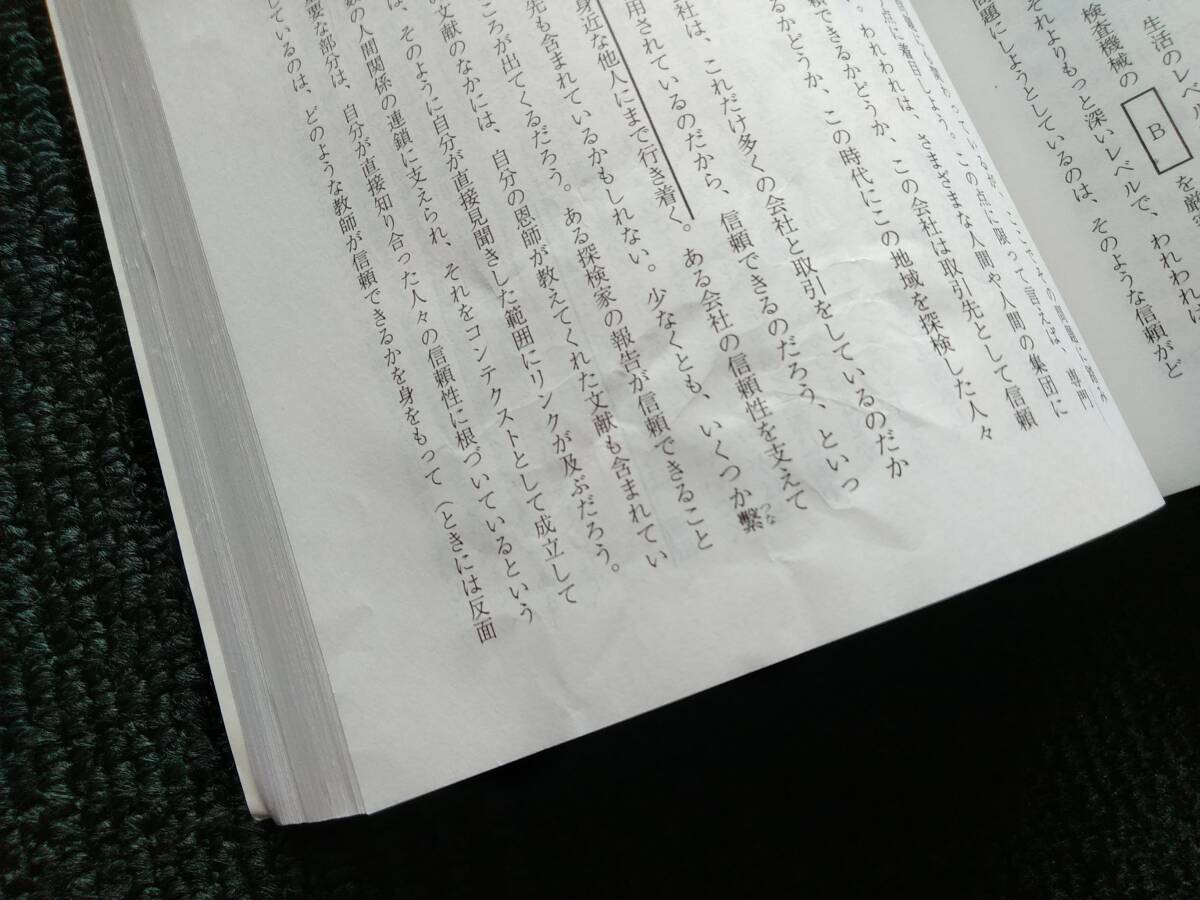 生活のレベル
検査機械の B を厳
それよりもっと深いレベルで、われわれは
問題にしようとしているのは、そのような信頼がど
点に着目しよう。この点に限って言えば、専門
われわれは、さまざまな人間や人間の集団に
頼できるかどうか、この会社は取引先として信頼
るかどうか、この時代にこの地域を探検した人々
社は、これだけ多くの会社と取引をしているのだか
用されているのだから、信頼できるのだろう、といっ
身近な他人にまで行き着く。ある会社の信頼性を支えて
先も含まれているかもしれない。少なくとも、いくつか繫つな
ころが出てくるだろう。ある探検家の報告が信頼できること
文献のなかには、自分の恩師が教えてくれた文献も含まれてい
は、そのように自分が直接見聞きした範囲にリンクが及ぶだろう。
数の人間関係の連鎖に支えられ、それをコンテクストとして成立して
要な部分は、自分が直接知り合った人々の信頼性に根づいているという
しているのは、どのような教師が信頼できるかを身をもって（ときには反面